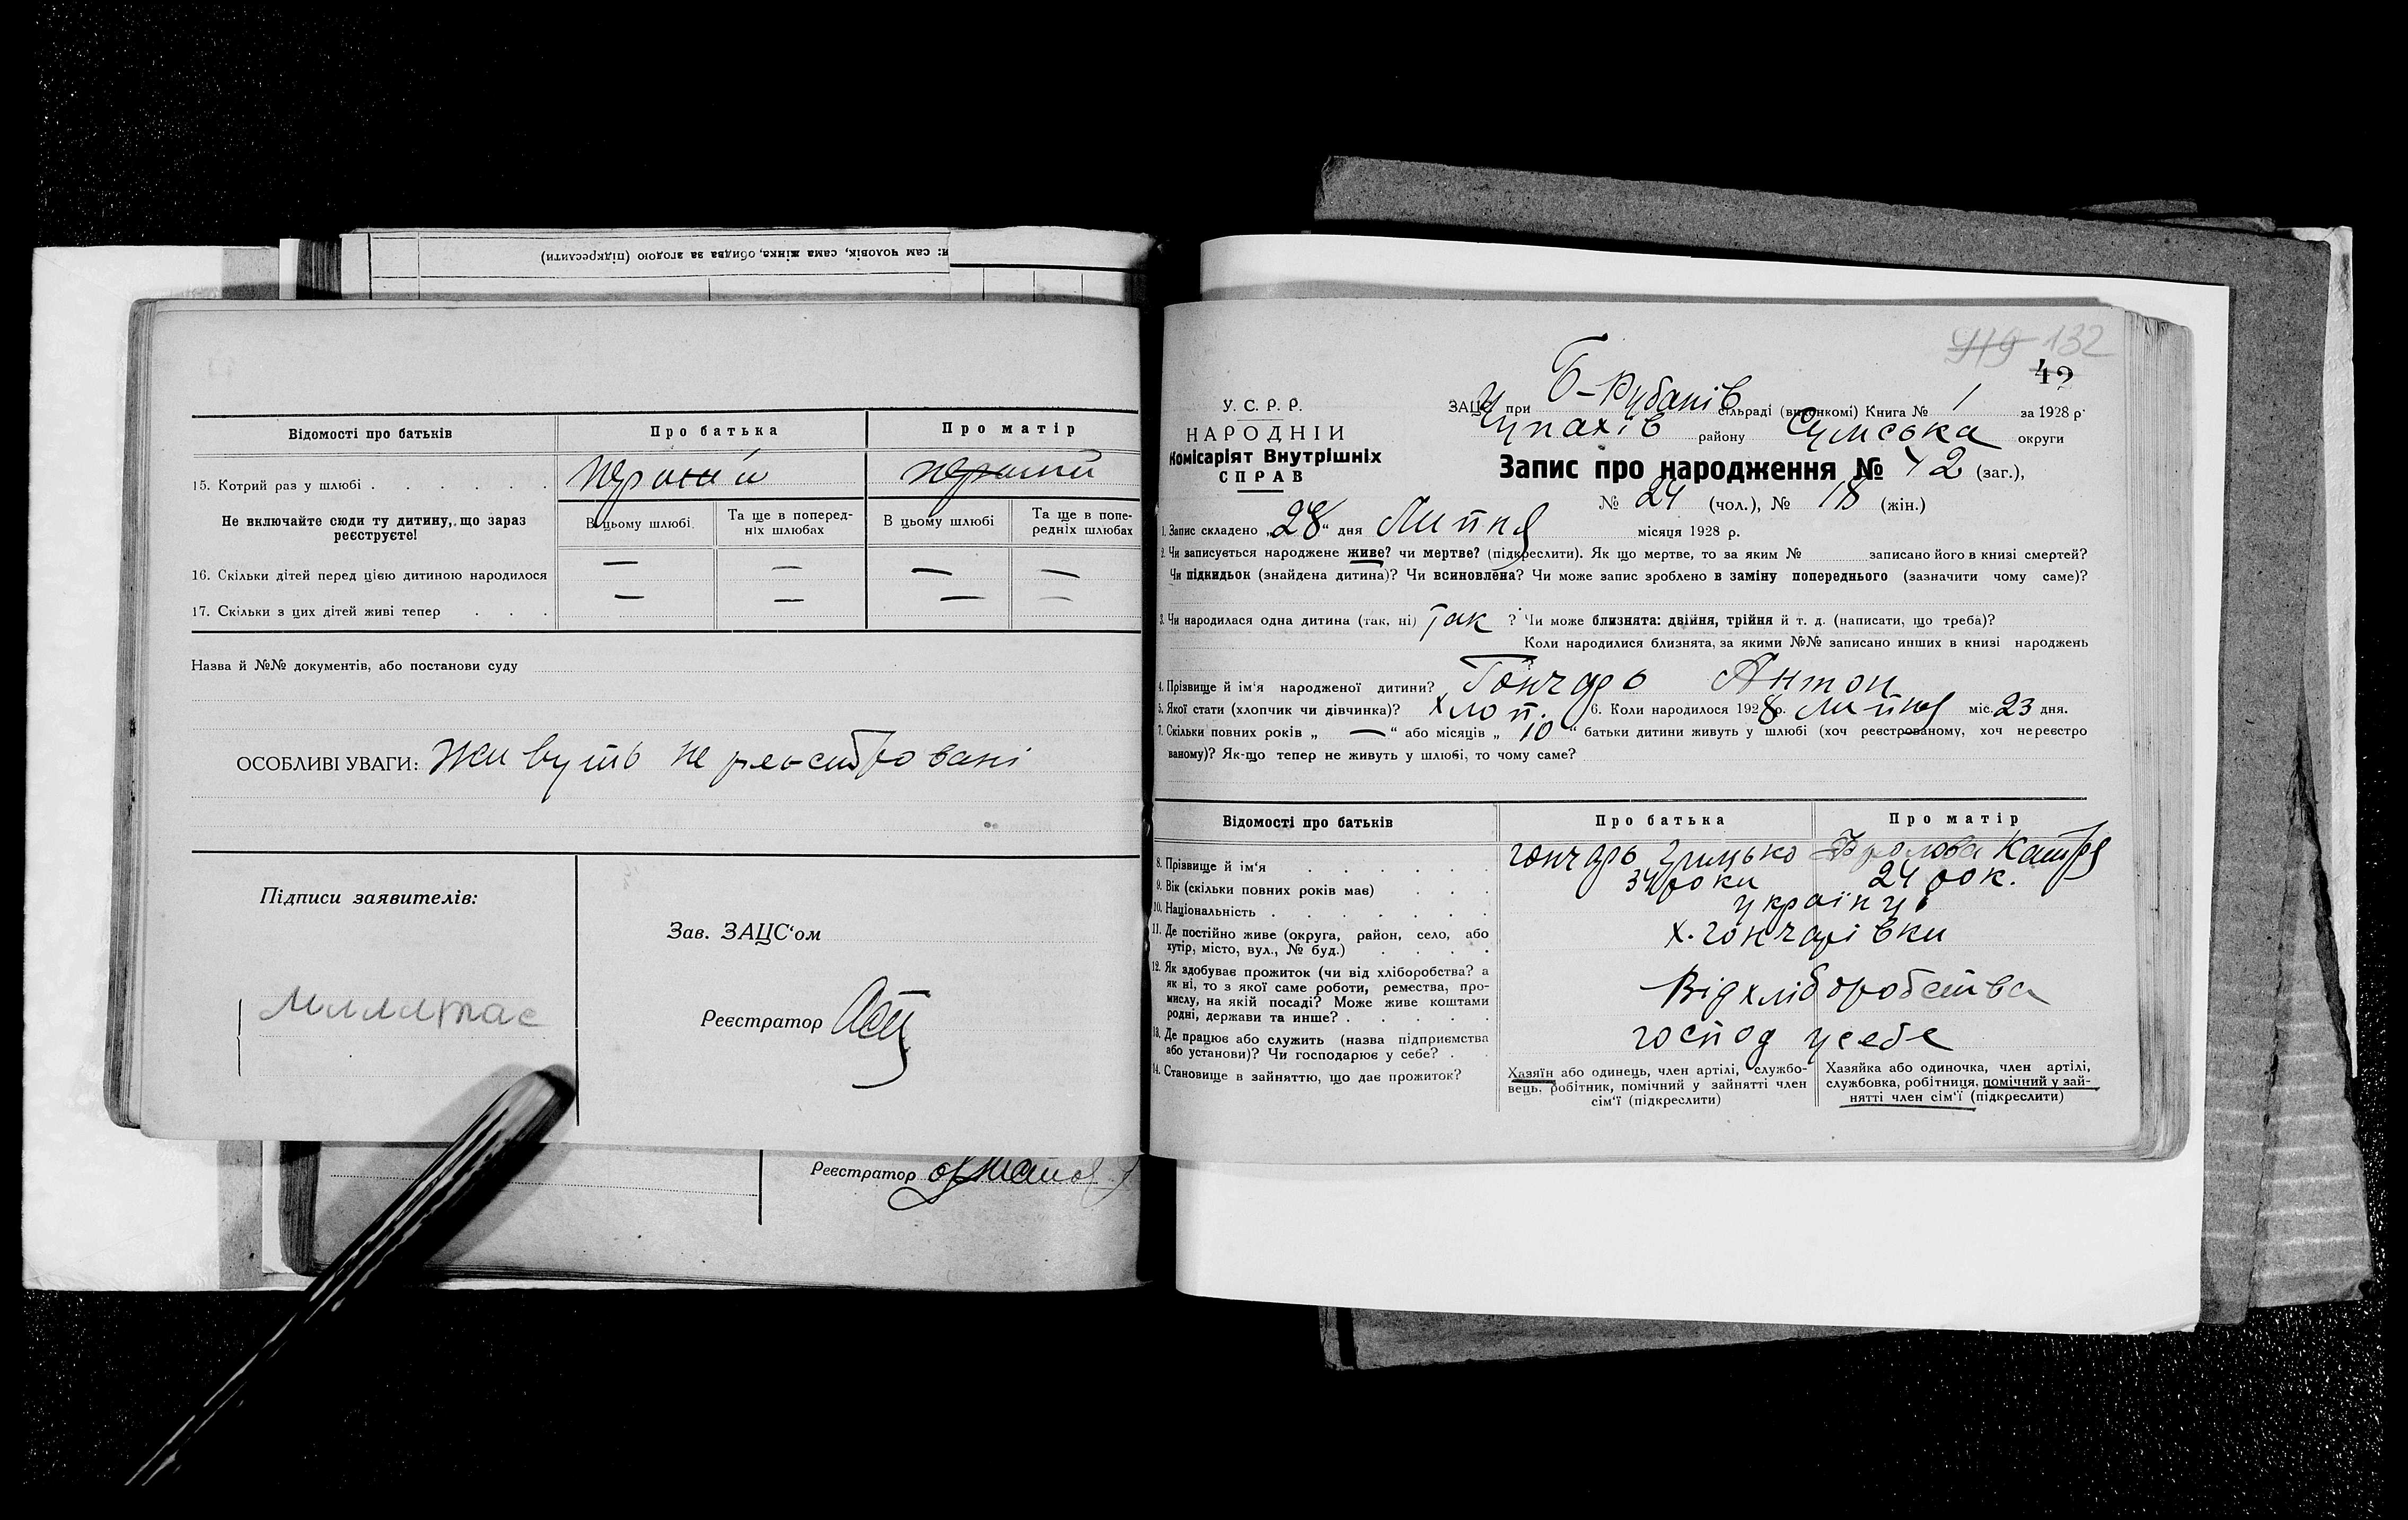 и: сам чоловік, сама жінка, обидва за згодою (підкреслити)
Відомості про батьків Про батька Про матір
15. Котрий раз у шлюбі . . . . . . перший перший
Не включайте сюди ту дитину, що зараз реєструєте!
В цьому шлюбі Та ще в поперед-
ніх шлюбах В цьому шлюбі Та ще в попе-
редніх шлюбах
16. Скільки дітей перед цією дитиною народилося — — — —
17. Скільки з цих дітей живі тепер . . . — — — —
Назва й №№ документів, або постанови суду
ОСОБЛИВІ УВАГИ: Живуть не реєстровані
Підписи заявителів:
Зав. ЗАЦС‘ом
Реєстратор
Реєстратор
132
42
У. С. Р. Р.
НАРОДНІЙ
Комісаріят Внутрішніх
СПРАВ
ЗАЦС при Б-Рубанів сільраді (виконкомі) Книга № 1 за 1928 р.
Чупахів району Сумська округи
Запис про народження № 42 (заг.),
№ 24 (чол.), № 18 (жін.)
1. Запис складено „28“ дня Липня місяця 1928 р.
2. Чи записується народжене живе? чи мертве? (підкреслити). Як що мертве, то за яким № записано його в книзі смертей?
Чи підкидьок (знайдена дитина)? Чи всиновлена? Чи може запис зроблено в заміну попереднього (зазначити чому саме)?
3. Чи народилася одна дитина (так, ні) Так ? Чи може близнята: двійня, трійня й т. д. (написати, що треба)?
Коли народилися близнята, за якими №№ записано инших в книзі народжень
4. Прізвище й ім‘я народженої дитини? Гончарь Антон
5. Якої стати (хлопчик чи дівчинка)? хлоп. 6. Коли народилося 1928 р. липня міс. 23 дня.
7. Скільки повних років „ — “ або місяців „ 10 “ батьки дитини живуть у шлюбі (хоч реєстрованому, хоч нереєстро
ваному)? Як-що тепер не живуть у шлюбі, то чому саме?
Відомості про батьків Про батька Про матір
8. Прізвище й ім‘я . . . . . . гончарь Грицько Фролова Катря
9. Вік (скільки повних років має) . . . 34 роки 24 рок.
10. Національність . . . . . . . українці
11. Де постійно живе (округа, район, село, або
хутір, місто, вул., № буд.) . . . . х. гончарівки
12. Як здобуває прожиток (чи від хліборобства? а
як ні, то з якої саме роботи, ремества, про-
мислу, на якій посаді? Може живе коштами
родні, держави та инше? . . . . . Від хліборобства
13. Де працює або служить (назва підприємства
або установи)? Чи господарює у себе? . . господ у себе
14. Становище в зайняттю, що дає прожиток?
Хазяїн або одинець, член артілі, службо-
вець, робітник, помічний у зайнятті член
сім‘ї (підкреслити)
Хазяйка або одиночка, член артілі,
службовка, робітниця, помічний у зай-
нятті член сім‘ї (підкреслити)